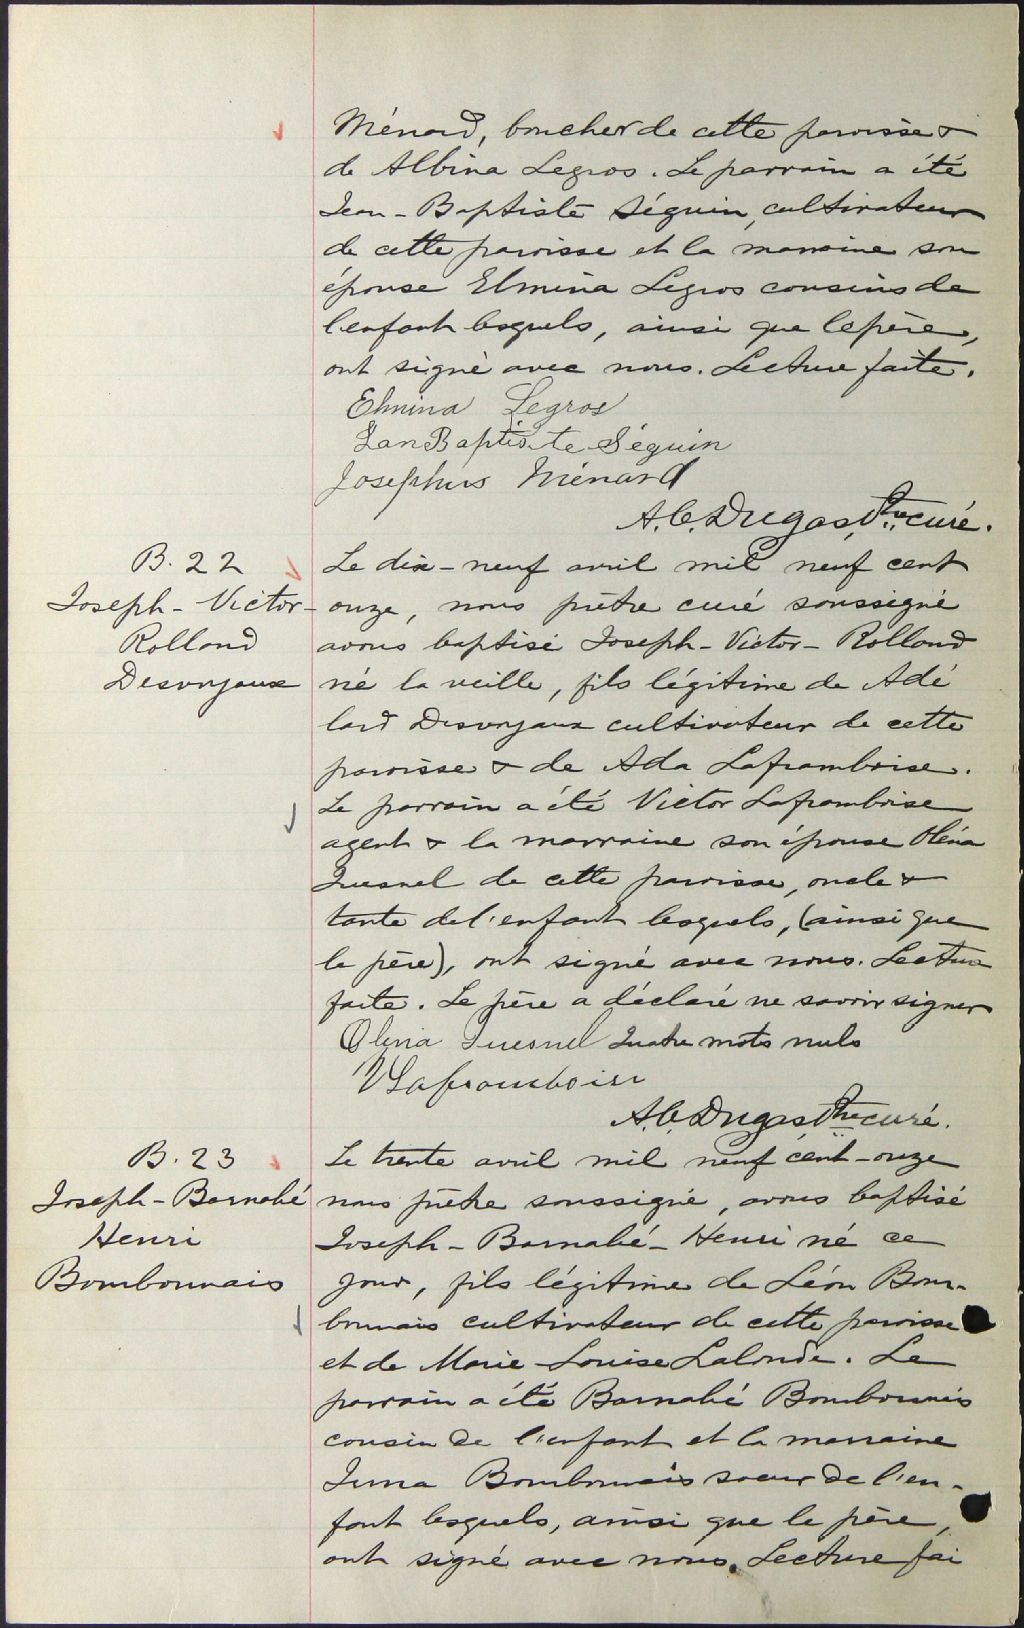 Ménard, boucher de cette paroisse &
de Albina Legros. Le parrain a été
Jean-Baptiste Séguin, cultivateur
de cette paroisse et la marraine son
épouse Elmina Legros cousins de
l'enfant lesquels, ainsi que le père,
ont signé avec nous. Lecture faite.
Elmina Legros
Jan Baptiste Séguin
Josephus Ménard
A. C. Dugas, Ptre curé.
B. 22
Joseph-Victor-
Rolland
Desvoyaux
Le dix-neuf avril mil neuf cent
onze, nous prêtre curé soussigné
avons baptisé Joseph-Victor-Rolland
né la veille, fils légitime de Adé
lard Desvoyaux cultivateur de cette
paroisse & de Ada Laframboise.
Le parrain a été Victor Laframboise
agent & la marraine son épouse Oléna
Quesnel de cette paroisse, oncle &
tante de l'enfant lesquels, (ainsi que
le père), ont signé avec nous. Lecture
faite. Le père a déclaré ne savoir signer
Olena Quesnel Quatre mots nuls
V Laframboise
A. C. Dugas Ptre curé.
B. 23
Joseph-Barnabé
Henri
Bombonnais
Le trente avril mil neuf cent-onze
nous prêtre soussigné, avons baptisé
Joseph-Barnabé-Henri né ce
jour, fils légitime de Léon Bom-
bonnais cultivateur de cette paroisse
et de Marie-Louise Lalonde. Le
parrain a été Barnabé Bombonnais
cousin de l'enfant et la marraine
Bombonnais soeur de l'en-
fant lesquels, ainsi que le père,
ont signé avec nous. Lecture fai